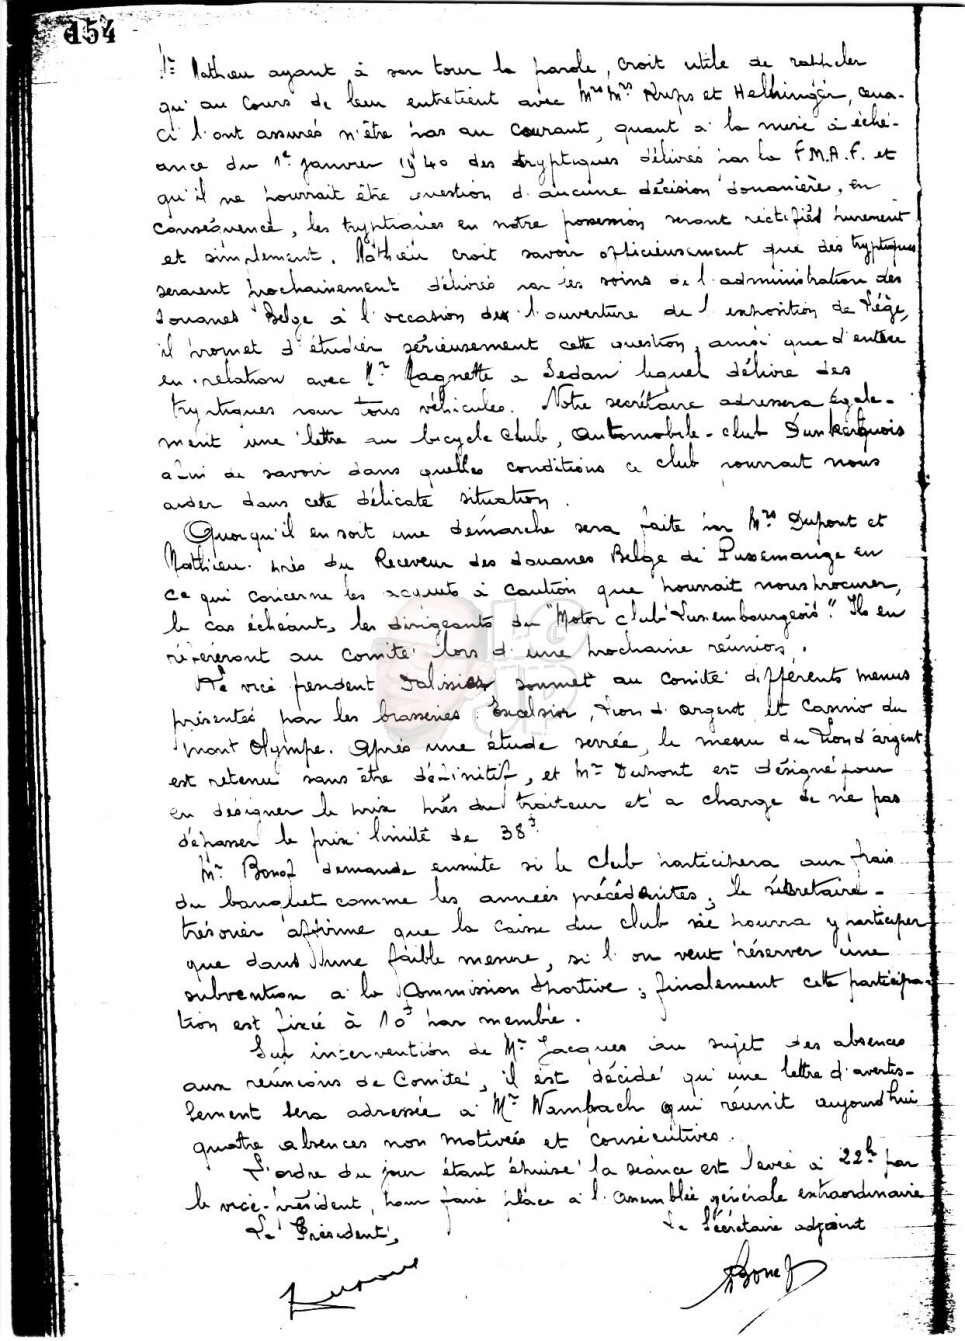 154
Mr Mathieu ayant à son tour la parole, croit utile de rappeler
qu'au cours de leur entretient avec Mrs Mrs Krups et Helbinger, ceux-
ci l'ont assurés n'être pas au courant, quant à la mise à éché-
ance du 1er janvier 1940 des tryptiques délivrés par la F.M.A.F. et
qu'il ne pourrait être question d'aucune décision douanière, en
conséquence, les tryptiques en notre possession seront rectifiés purement
et simplement. Mathieu croit savoir officieusement que des tryptiques
seraient prochainement délivrés par les soins de l'administration des
douanes Belge à l'occasion de l'ouverture de l'exposition de Liège,
il promet d'étudier sérieusement cette question, ainsi que d'entrer
en relation avec Mr Magnette a Sedan lequel délivre des
tryptiques pour tous véhicules. Notre secrétaire adressera égale-
ment une lettre au bicycle Club, Automobile-club Dunkerquois
afin de savoir dans quelles conditions ce club pourrait nous
aider dans cette délicate situation.
Quoiqu'il en soit une démarche sera faite par Mrs Dupont et
Mathieu près du Receveur des douanes Belge de Pussemange en
ce qui concerne les acquits à caution que pourrait nous procurer,
le cas échéant, les dirigeants du "Motor club Luxembourgeois". Ils en
réfèreront au Comité lors d'une prochaine réunion.
Le vice président soumet au comité différents menus
présentés par les brasseries Excelsior, Lion d'argent et Casino du
Mont Olympe. Après une étude serrée, le menu du Lion d'argent
est retenu sans être définitif, et Mr Dupont est désigné pour
en désigner le prix près du traiteur et a charge de ne pas
dépasser le prix limite de 38f.
Mr Bonef demande ensuite si le club participera aux frais
du banquet comme les années précédentes; le sécretaire-
trésorier affirme que la caisse du club ne pourra y participer
que dans une faible mesure, si l'on veut réserver une
subvention a la Commission Sportive; finalement cette participa-
tion est fixée à 10f par membre.
Sur intervention de Mr Jacques au sujet des absences
aux réunions de Comité, il est décidé qu'une lettre d'avertis-
sement sera adressée à Mr Wampach qui réunit aujourd'hui
quatre absences non motivées et consécutives.
L'ordre du jour étant épuisé la séance est levée à 22h par
le vice-président, pour faire place a l'assemblée générale extraordinaire
Le Président, Le Sécrétaire adjoint
Bonef